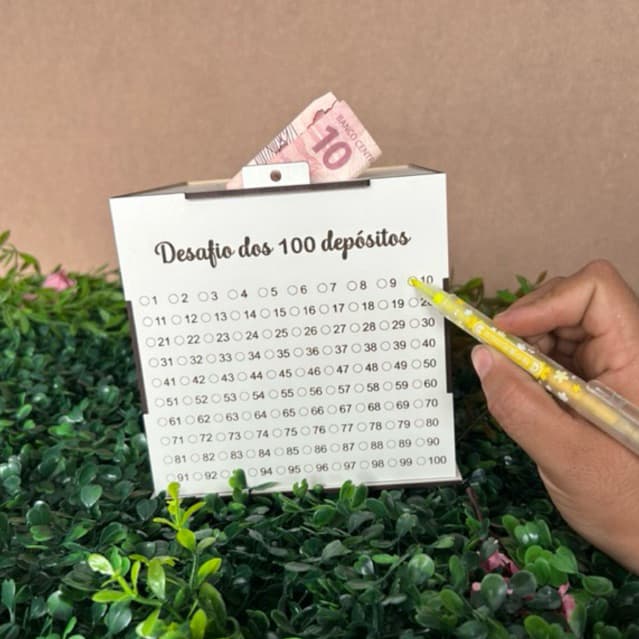 BANCO CENT
10
Desafio dos 100 depósitos
1 2 3 4 5 6 7 8 9 10
11 12 13 14 15 16 17 18 19 20
21 22 23 24 25 26 27 28 29 30
31 32 33 34 35 36 37 38 39 40
41 42 43 44 45 46 47 48 49 50
51 52 53 54 55 56 57 58 59 60
61 62 63 64 65 66 67 68 69 70
71 72 73 74 75 76 77 78 79 80
81 82 83 84 85 86 87 88 89 90
91 92 94 95 96 97 98 99 100